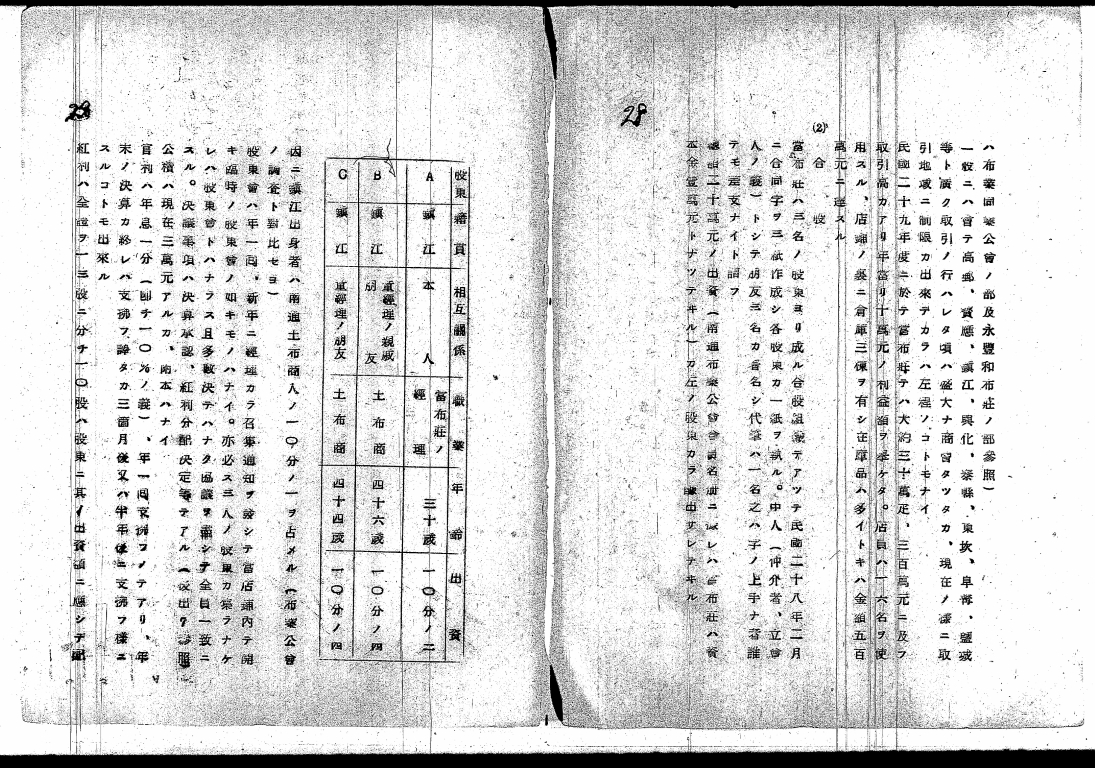 28
ハ布業同業公會ノ部及永豐和布莊ノ部參照）
一般ニハ曾テ高郵、寶應、鎮江、興化、泰縣、東坎、阜寧、鹽城
等ト廣ク取引ノ行ハレタ頃ハ盛大ナ商習タツタカ、現在ノ樣ニ取
引地域ニ制限カ出來テカラハ左程ノコトモナイ
民國二十九年度ニ於テ當布莊テハ大約三十萬疋、三百萬元ニ及フ
取引高カアリ年當リ十萬元ノ利益額ヲ擧ケタ。店員ハ一六名ヲ使
用スル、店鋪ノ裏ニ倉庫三棟ヲ有シ在庫品ハ多イトキハ金額五百
萬元ニ達スル
(2) 合股
當布莊ハ三名ノ股東ヨリ成ル合股組織テアツテ民國二十八年二月
ニ合同字ヲ三紙作成シ各股東カ一紙ヲ執ル。中人（仲介者、立會
人ノ義）トシテ朋友三名カ書名シ代筆ハ一名之ハ字ノ上手ナ者誰
テモ差支ナイト謂フ
總額二十萬元ノ出資（南通布業公會會員名册ニ依レハ當布莊ハ資
本金壹萬元トナツテヰル）カ左ノ股東カラ釀出サレテヰル
28
股東 籍貫 相互關係 職業 年齡 出資
A 鎮江 本人 當布莊ノ經理 三十歲 一〇分ノ二
B 鎮江 董經理ノ親戚朋友 土布商 四十六歲 一〇分ノ四
C 鎮江 董經理ノ朋友 土布商 四十四歲 一〇分ノ四
因ニ鎮江出身者ハ南通土布商人ノ一〇分ノ一ヲ占メル（布業公會
ノ調査ト對比セヨ）
股東會ハ年一回、新年ニ經理カラ召集通知ヲ發シテ當店鋪內テ開
キ臨時ノ股東會ノ如キモノハナイ。亦必ス三人ノ股東カ集ラナケ
レハ股東會トハナラス且多數決テハナク協議ヲ盡シテ全員一致ニ
スル。決議事項ハ決算承認、紅利分配決定等テアル（支出ノ部參照
公積ハ現在三萬元アルカ、南本ハナイ
官利ハ年息一分（即チ一〇％ノ義）、年一回支拂フノテアリ、年
末ノ決算カ終レハ支拂フ譯タカ三箇月後又ハ半年後ニ支拂フ樣ニ
スルコトモ出來ル
紅利ハ全體ヲ一三股ニ分チ一〇股ハ股東ニ其ノ出資額ニ應シテ配